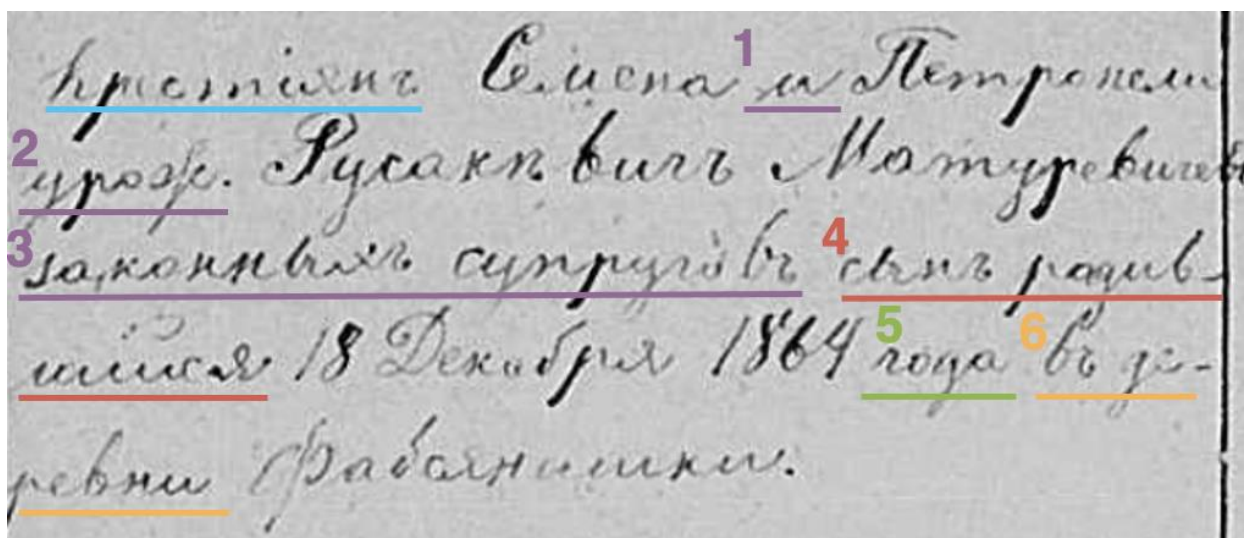 Крестіянъ Семена 1 и Петронели
2 урож. Русаквичъ Матуревичевъ
3 законныхъ супруговъ 4 сынъ родив-
шійся 18 Декабря 1864 5 года 6 въ де-
ревни Фабіянишки.